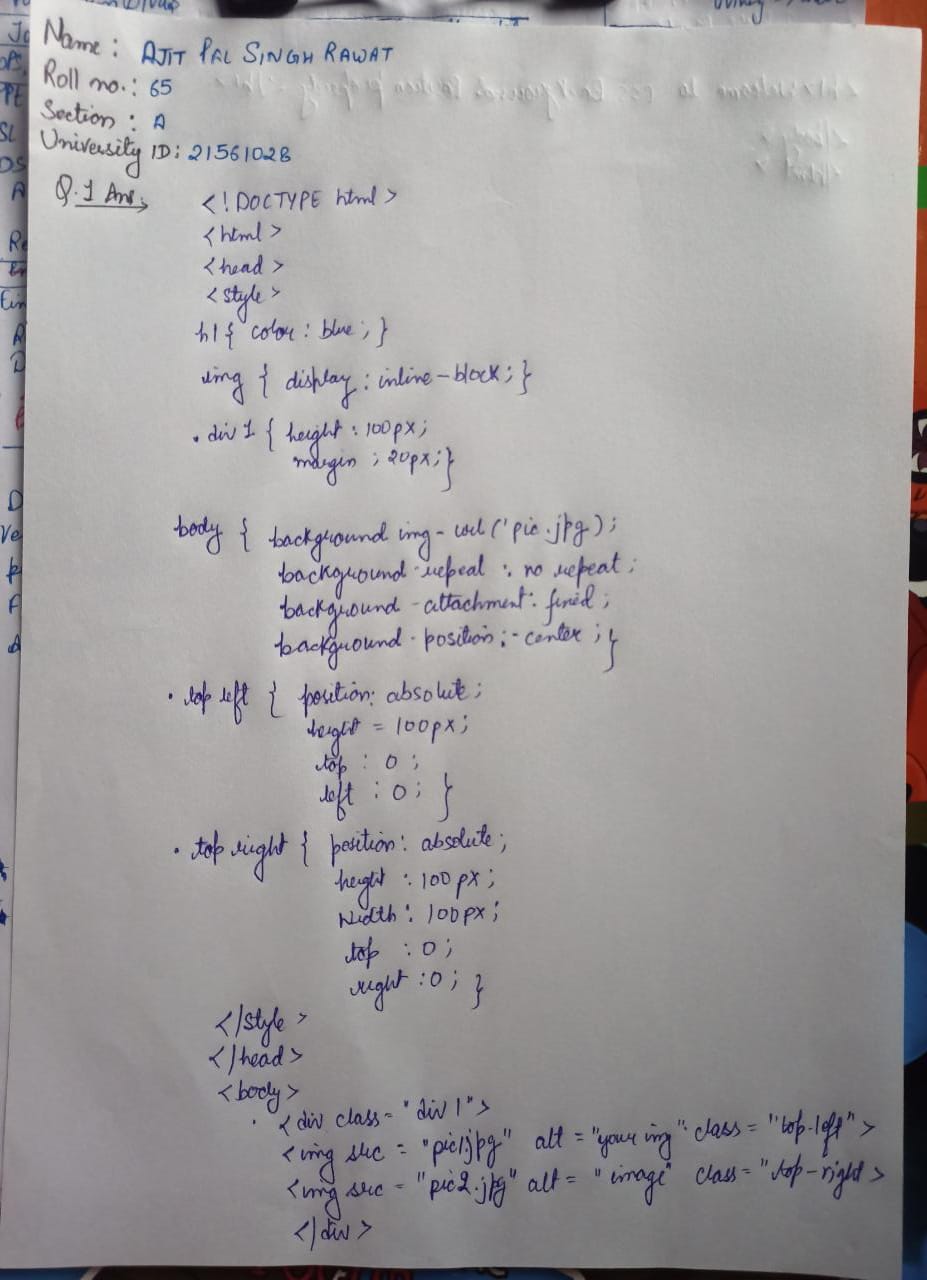 Name : AJIT PAL SINGH RAWAT
Roll no. : 65
Section : A
University ID : 21561028
Q.1 Ans.
<!DOCTYPE html>
<html>
<head>
<style>
h1{ color : blue ; }
img { display : inline-block ; }
. div 1 { height : 100px ;
margin ; 20px ; }
body { background img - url ('pic.jpg) ;
background-repeat : no repeat ;
background-attachment : fixed ;
background-position :- center ; }
. top left { position : absolute ;
height = 100px ;
top : 0 ;
left : 0 ; }
. top right { position : absolute ;
height : 100px ;
Width : 100px ;
top : 0 ;
right : 0 ; }
</style>
</head>
<body>
<div class = "div 1">
<img src = "pic1.jpg" alt = "your img" class = "top-left">
<img src = "pic2.jpg" alt = "image" class = "top-right>
</div>